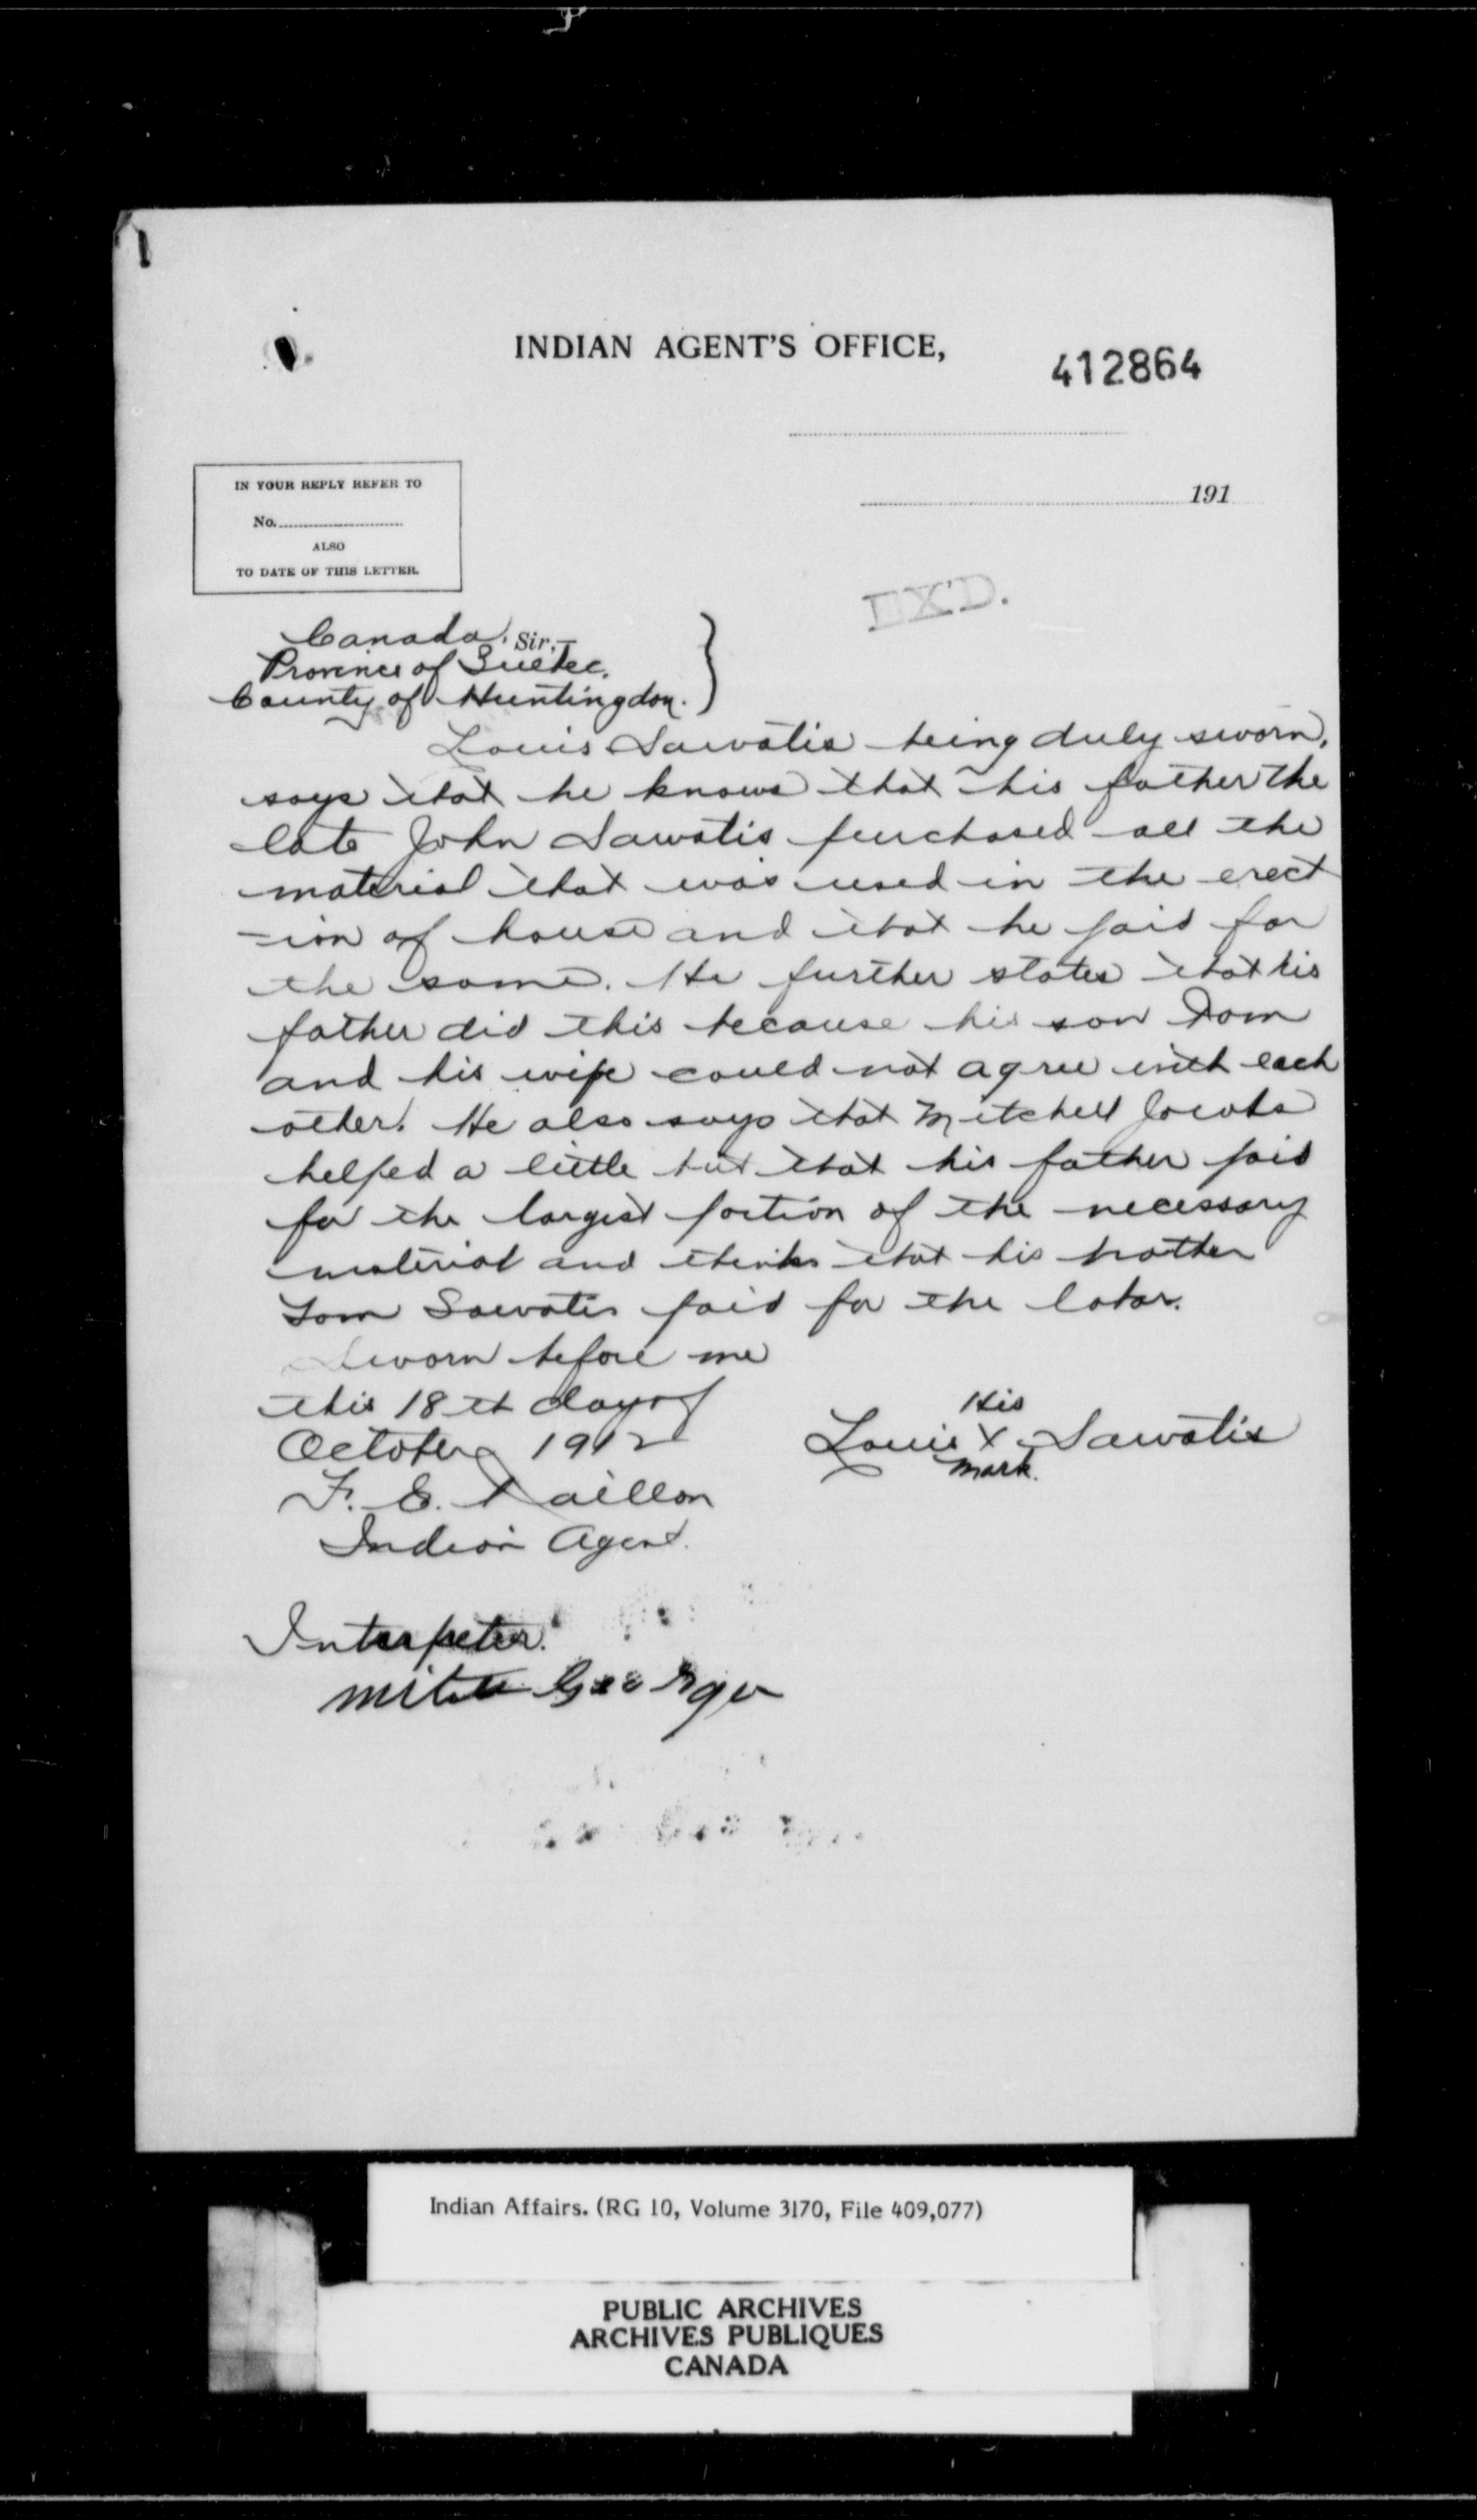 INDIAN AGENT'S OFFICE,
412864
191
IN YOUR REPLY REFER TO
No.
ALSO
TO DATE OF THIS LETTER.
Canada. Sir,—
Province of Quebec.
County of Huntingdon.
Louis Sawatis being duly sworn,
says that he knows that his father the
late John Sawatis purchased all the
material that was used in the erect
-ion of house and that he paid for
the same. He further states that his
father did this because his son Tom
and his wife could not agree with each
other. He also says that Mitchell Jacobs
helped a little but that his father paid
for the largest portion of the necessary
material and thinks that his brother
Tom Sawatis paid for the labor.
Sworn before me
this 18th day of
October 1912
His
Louis X Sawatis
mark.
F. E. Taillon
Indian Agent.
Interpeter.
George
Indian Affairs. (RG 10, Volume 3170, File 409,077)
PUBLIC ARCHIVES
ARCHIVES PUBLIQUES
CANADA